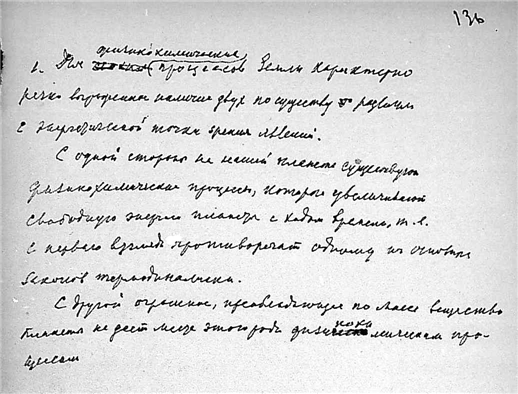 136
физикохимических
1. Для процессов Земли характерно
резко выраженное наличие двух по существу различных
с энергетической точки зрения явлений.
С одной стороны на нашей планете существуют
физикохимические процессы, которые увеличивают
свободную энергию планеты с ходом времени, т.е.
с первого взгляда противоречат одному из основных
законов термодинамики.
С другой огромное, преобладающее по массе вещество
планеты не дает места этого рода физикохимическим про-
цессам